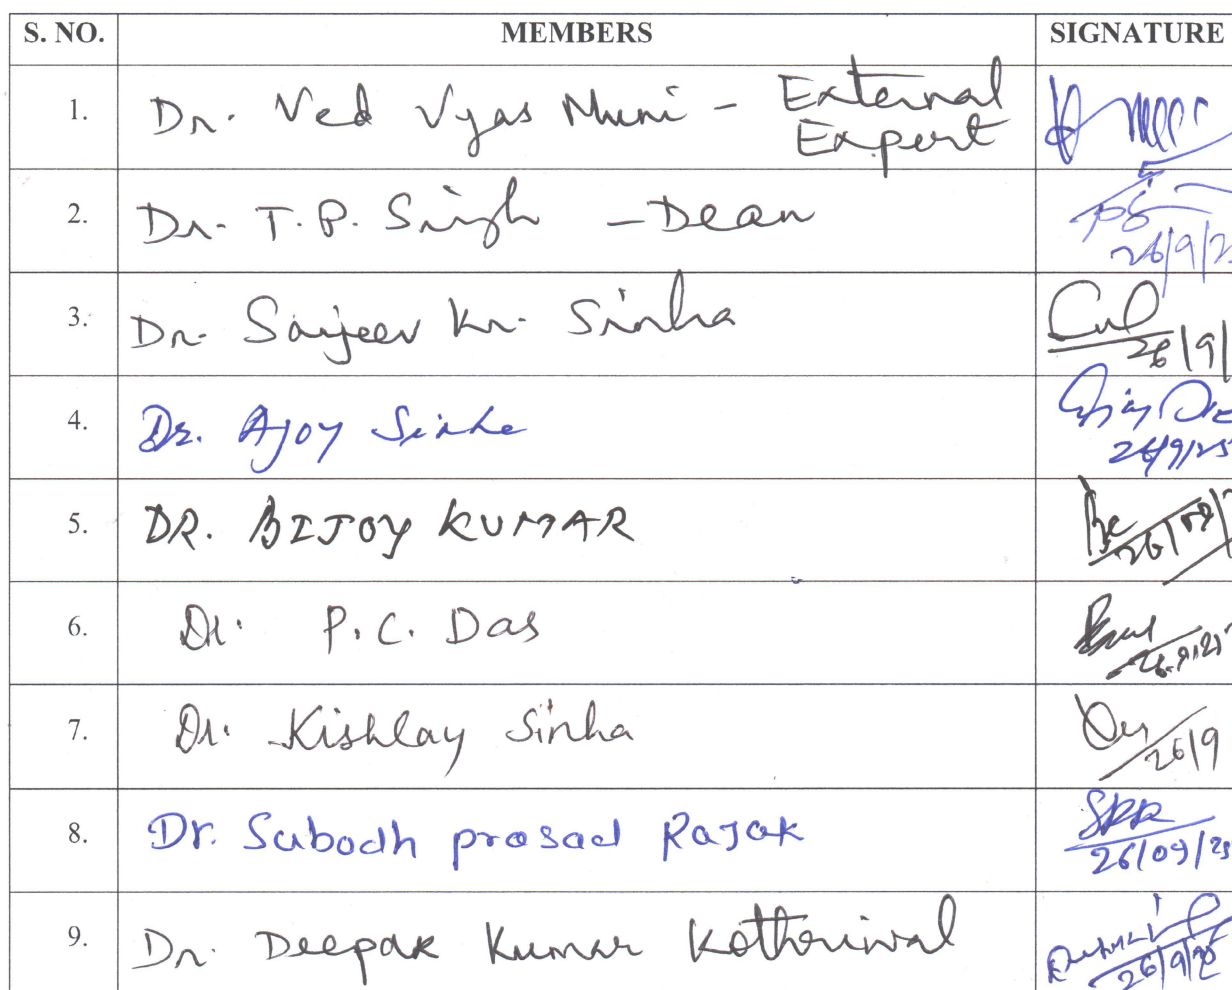 S. NO. MEMBERS SIGNATURE
1. Dr. Ved Vyas Muni - External
Expert
2. Dr. T. P. Singh - Dean
26/9/2
3. Dr. Sanjeev Kr. Sinha
26/9/
4. Dr. Ajoy Sinha
26/9/25
5. DR. BIJOY KUMAR
26/09/2
6. Dr. P. C. Das
26.9.25
7. Dr. Kishlay Sinha
26/9
8. Dr. Subodh prosad Rajak SPR
26/09/25
9. Dr. Deepak Kumar Kothoriwal
26/9/25